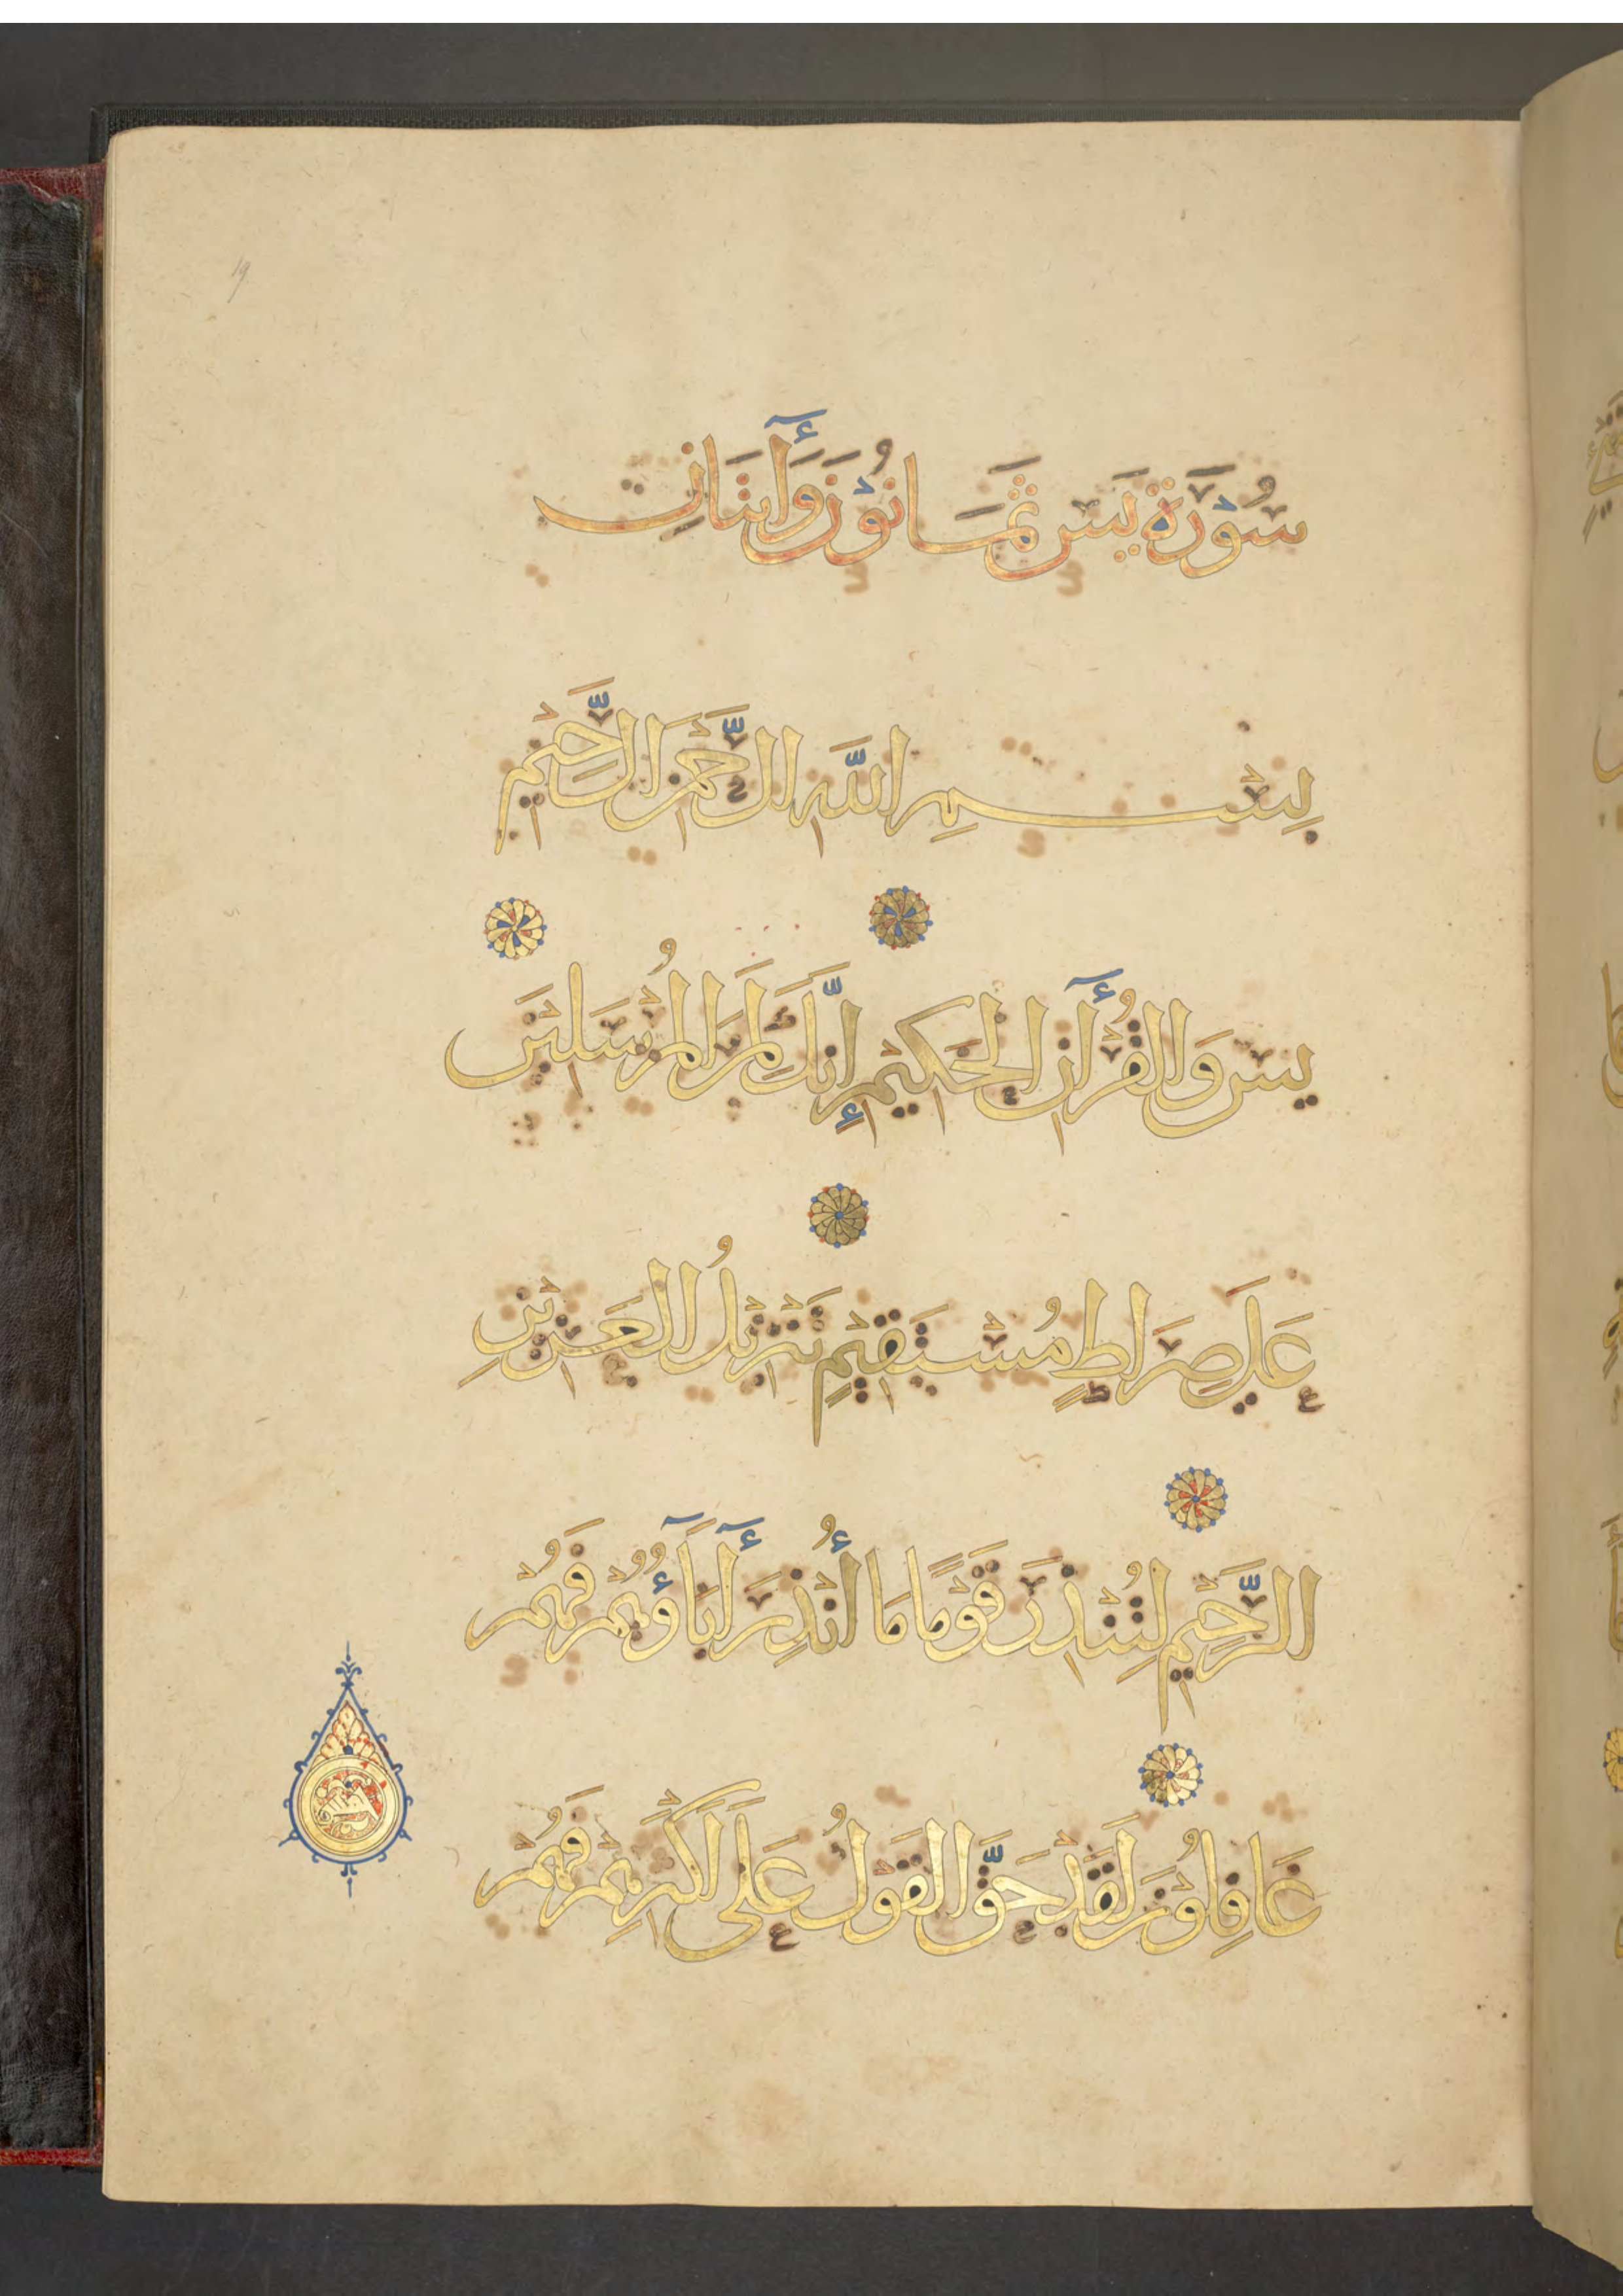 19
سُوْرَة يٰسٓ ثَمَانُوْنَ وَأٓيَتَانِ
بِسْمِ اللَّهِ الرَّحْمَنِ الرَّحِيْمِ
يس وَالْقُرْأٓنِ الْحَكِيْمِ إِنَّكَ لَمِنَ الْمُرْسَلِيْنَ
عَلَى صِرَاطٍ مُسْتَقِيْمٍ تَنْزِيْلُ الْعَزِيْزِ
الرَّحِيْمِ لِتُنْذِرَ قَوْمًا مَا أُنْذِرَ أٓبَآؤُهُمْ فَهُمْ
غَافِلُوْنَ لَقَدْ حَقَّ الْقَوْلُ عَلَى أَكْثَرِهِمْ فَهُمْ